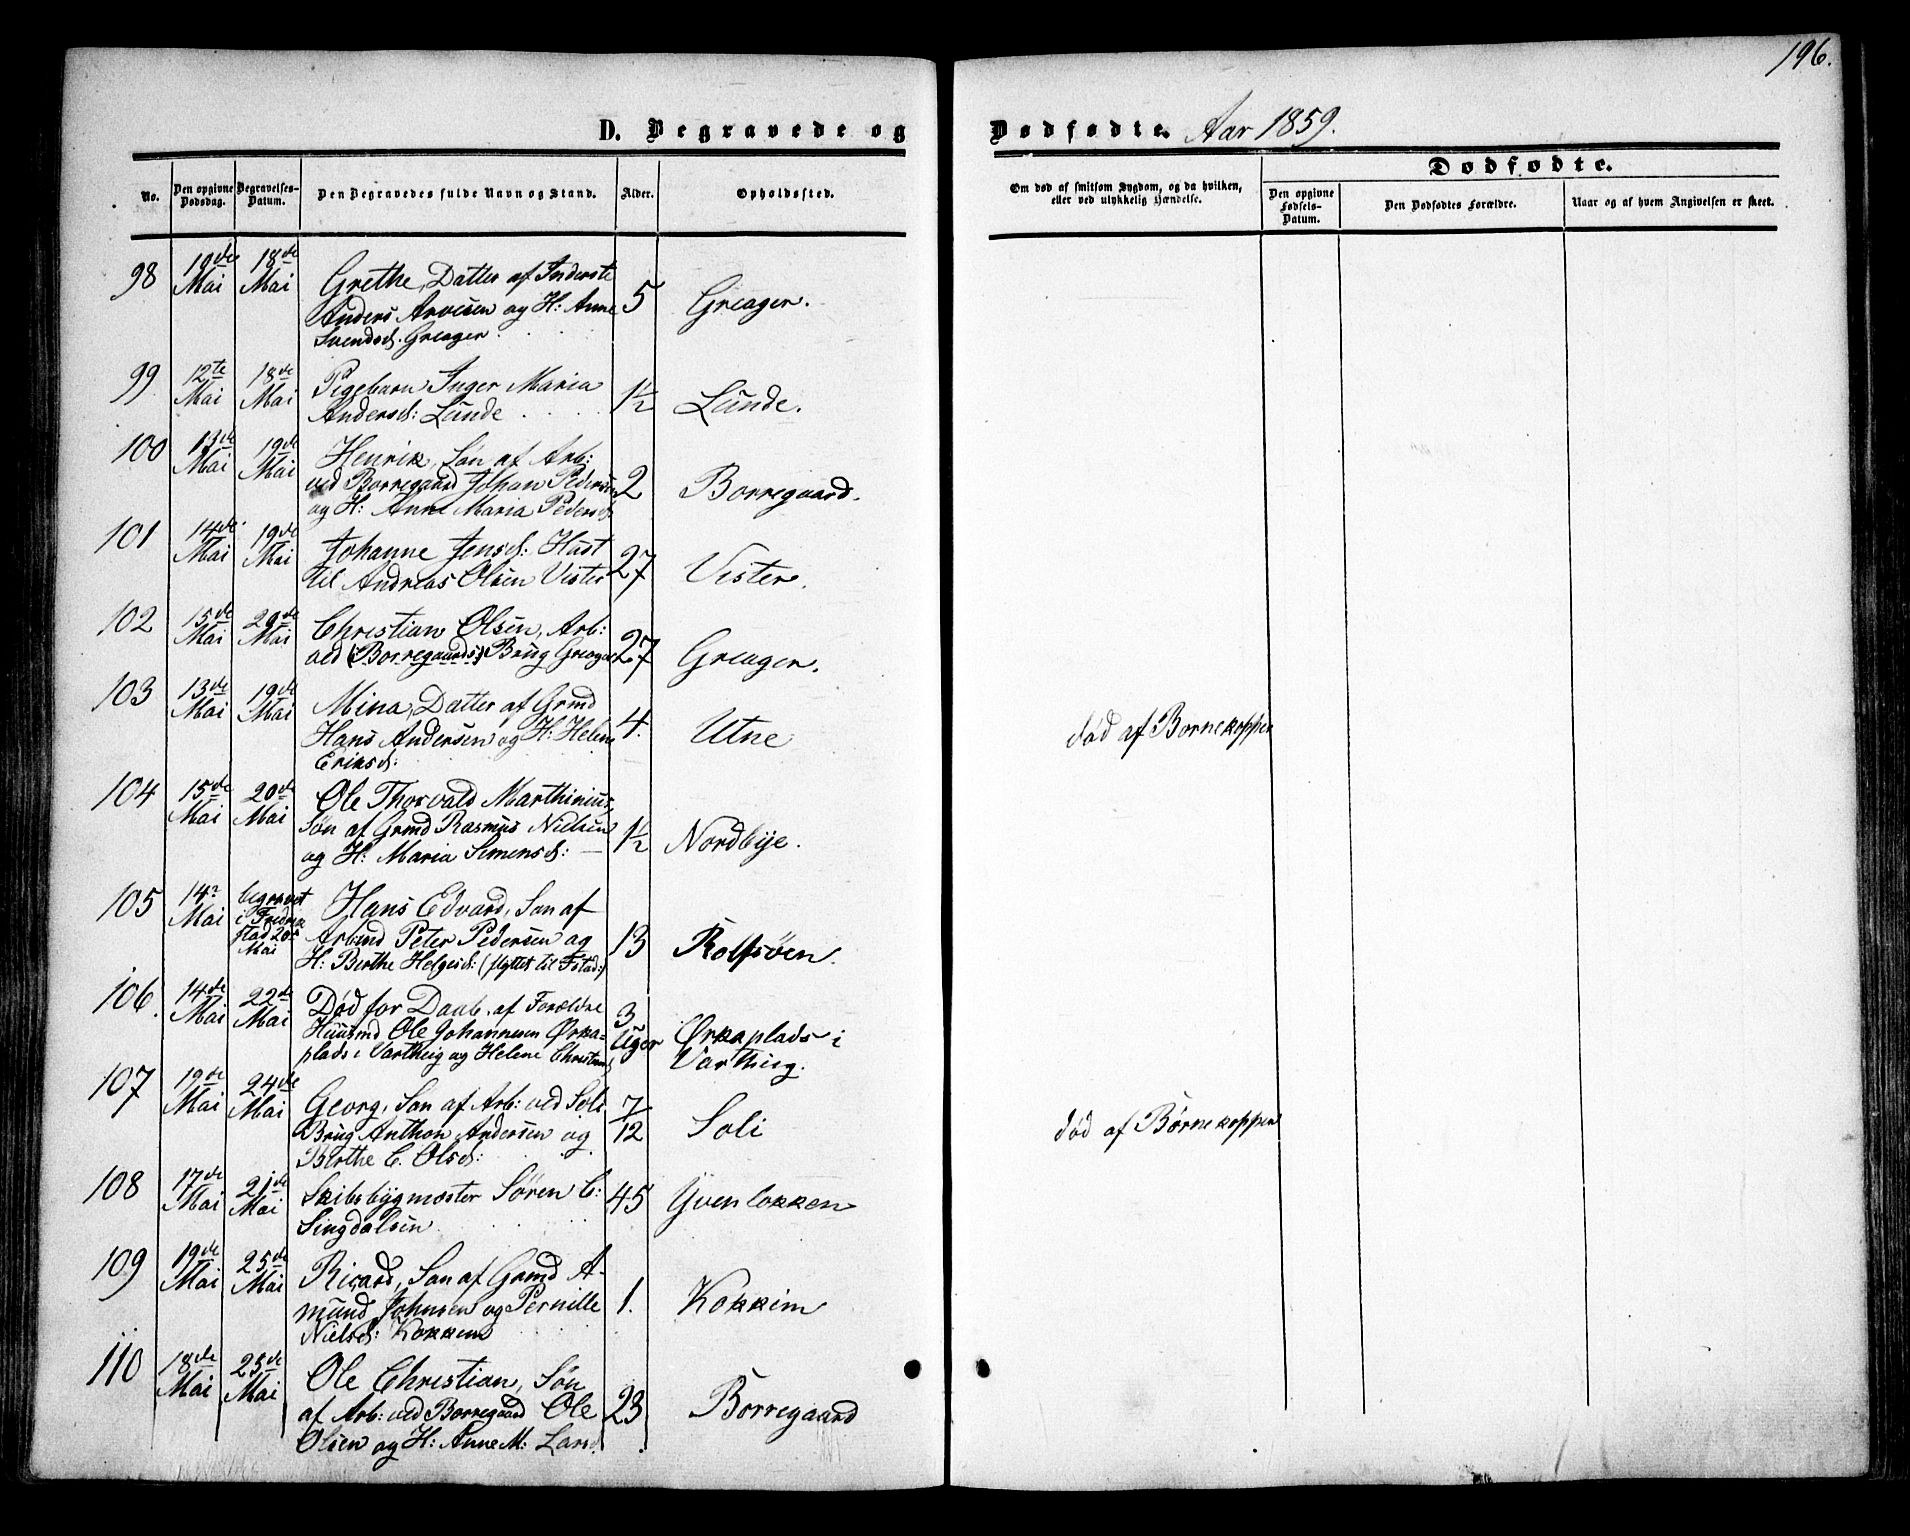 196.
D. Begravede og Dødfødte. Aar 1859.
Dødfødte.
No.
Den opgivne Dødsdag.
Begravelses-Datum.
Den Begravedes fulde Navn og Stand.
Alder.
Opholdssted.
Om død af smitsom Sygdom, og da hvilken,
eller ved ulykkelig Hændelse.
Den opgivne Fødsels-Datum.
Den Dødfødtes Forældre.
Naar og af hvem Angivelsen er skeet.
98 10de Mai 18de Mai
Grethe, Datter af Inderste
Anders Arvesen og H: Anne
Svendsd. Greager
5 Greager.
99 12te Mai 18de Mai
Pigebarn Inger Maria
Andersd: Lunde
1½ Lunde.
100 13de Mai 19de Mai
Henrik, Søn af Arb:
ved Borregaard Johan Pedersen
og H: Anne Maria Pedersd:
2 Borregaard.
101 14de Mai 19de Mai
Johanne Jensd: Hust
til Andreas Olsen Vister
27 Vister.
102 15de Mai 20de Mai
Christian Olsen, Arb:
ved (Borregaards) Brug Greager
27 Greager.
103 13de Mai 19de Mai
Mina, Datter af Grmd
Hans Andersen og H: Helene
Eriksd:
4. Utne
død af Bornekopper
104 15de Mai 20de Mai
Ole Thorvald Marthinius,
Søn af Grmd Rasmus Nielsen
og H: Maria Simensd:
1½ Nordbye.
105 14de Mai begravet
i Fredrik
stad 20de
Mai
Hans Edvard, Søn af
Arbmd Peter Pedersen og
H: Berthe Helgesd: (flyttet til Fstad:)
13 Rolfsøen.
106. 14de Mai 22de Mai
Død før Daab. af Forældre
Huusmd Ole Johannesen Ørka-
plads i Vartheig og Helene Christensd
3 Uger
Ørkaplads i
Varthieg.
107 19de Mai 24de Mai
Georg, Søn af Arb: ved Soli
Brug Anthon Andersen og
Berthe C. Olsd:
7/12 Soli
død af Børnekopper
108 17de Mai 21de Mai
Skibsbygmester Søren C:
Singdalsen
45 Yvenløkken
109 19de Mai 25de Mai
Ricard, Søn af Grmd A-
mund Johnsen og Pernille
Nielsd: Kokkim
1. Kokkim
110 18de Mai 25de Mai
Ole Christian, Søn
af Arb: ved Borregaard Ole
Olsen og H: Anne M: Larsd.
23 Borregaard